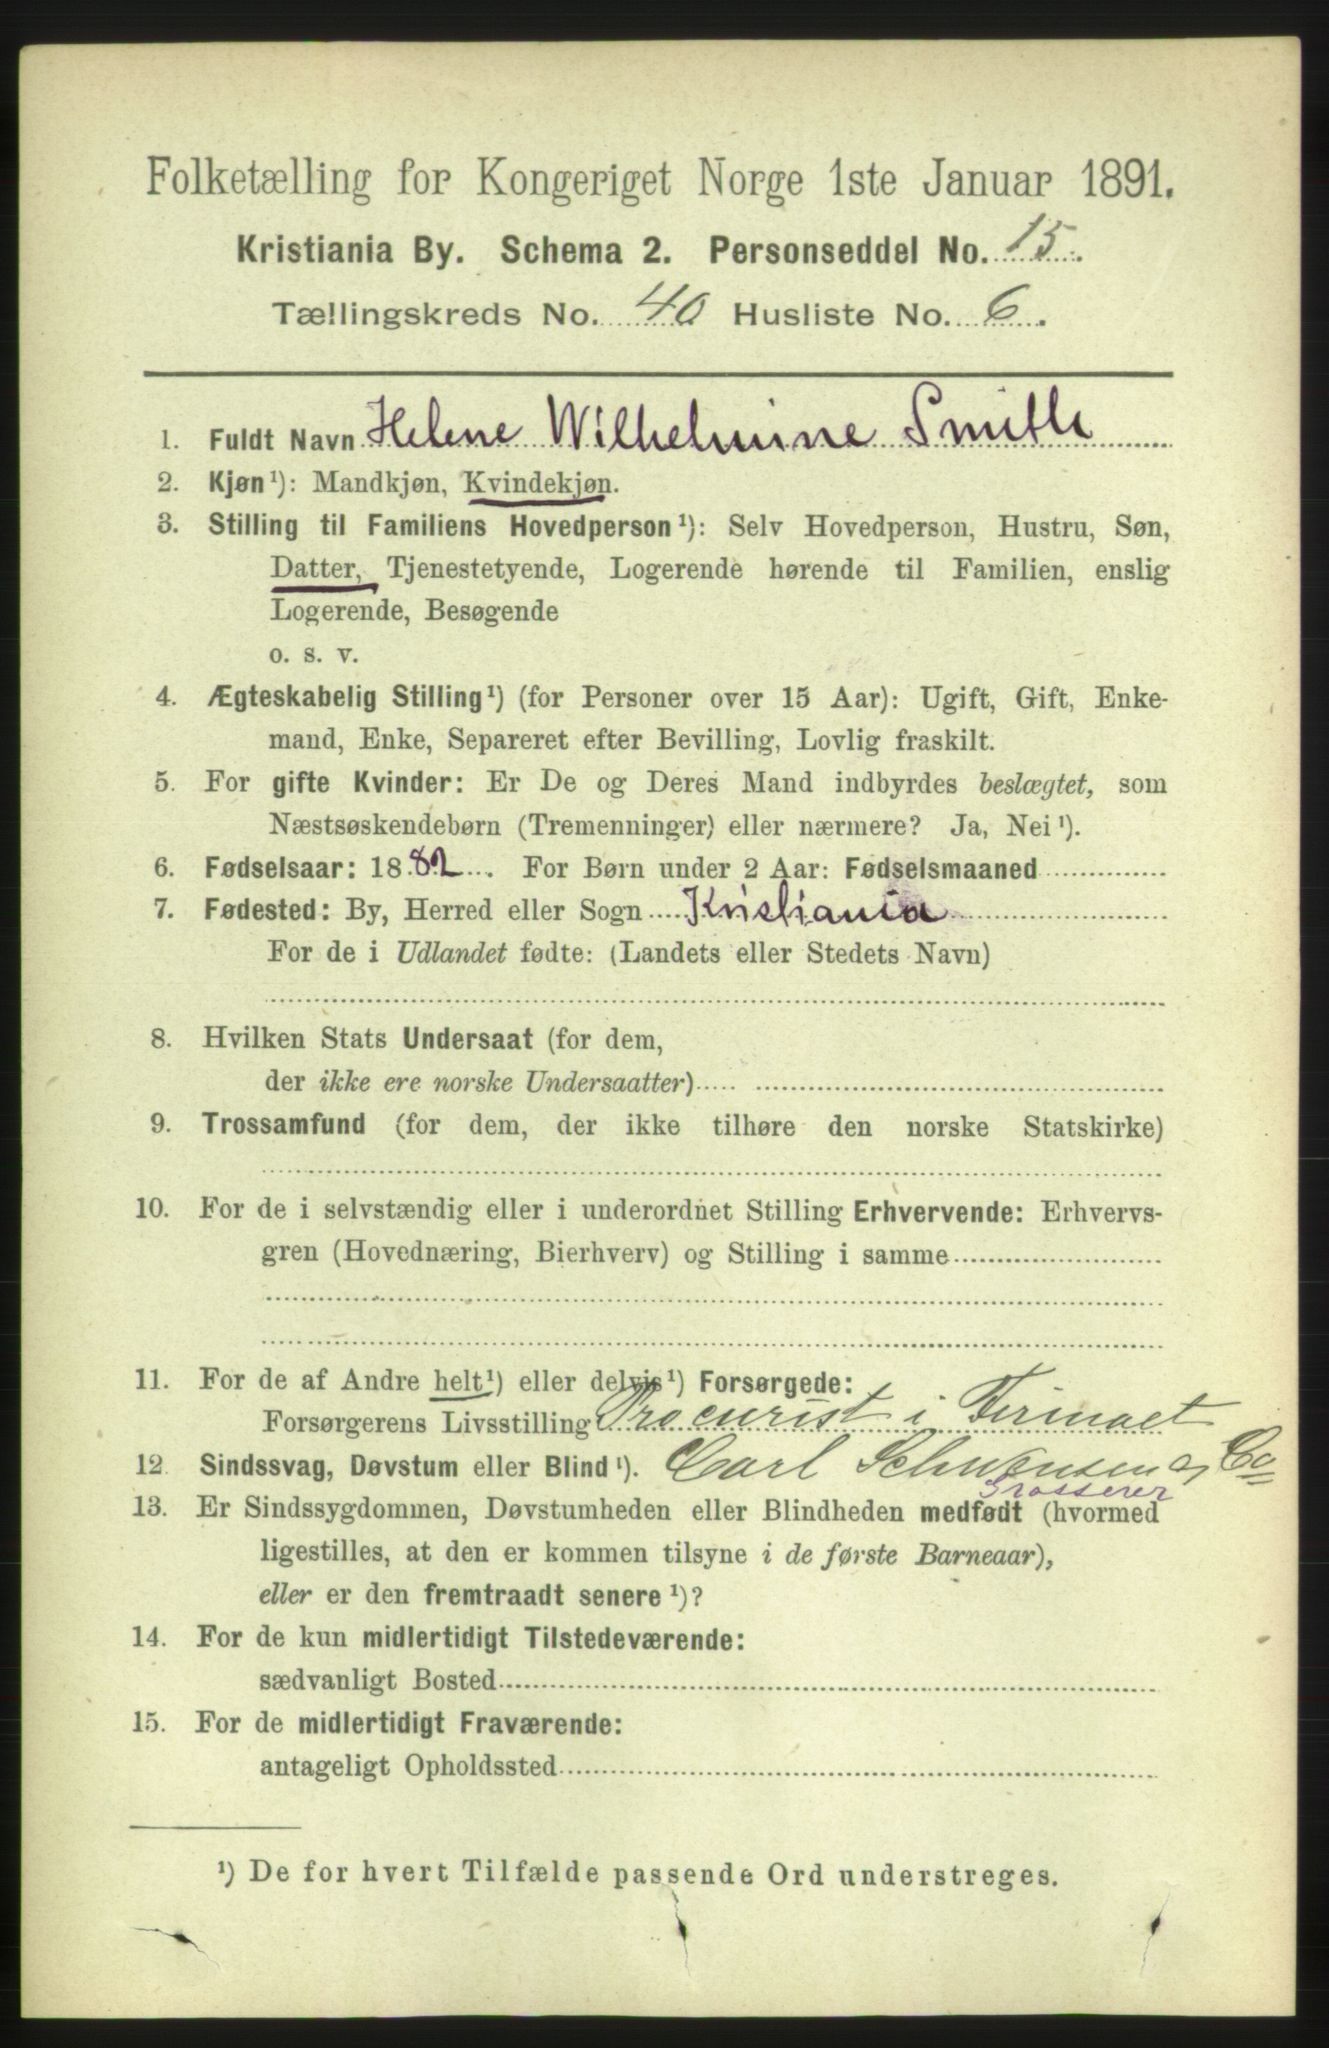 Folketælling for Kongeriget Norge 1ste Januar 1891.
Kristiania By. Schema 2. Personseddel No. 15.
Tællingskreds No. 40 Husliste No. 6.
1. Fuldt Navn Helene Wilhelmine Smith
2. Kjøn¹): Mandkjøn, Kvindekjøn.
3. Stilling til Familiens Hovedperson¹): Selv Hovedperson, Hustru, Søn,
Datter, Tjenestetyende, Logerende hørende til Familien, enslig
Logerende, Besøgende
o. s. v.
4. Ægteskabelig Stilling¹) (for Personer over 15 Aar): Ugift, Gift, Enke-
mand, Enke, Separeret efter Bevilling, Lovlig fraskilt.
5. For gifte Kvinder: Er De og Deres Mand indbyrdes beslægtet, som
Næstsøskendebørn (Tremenninger) eller nærmere? Ja, Nei¹).
6. Fødselsaar: 1882. For Børn under 2 Aar: Fødselsmaaned
7. Fødested: By, Herred eller Sogn Kristiania
For de i Udlandet fødte: (Landets eller Stedets Navn)
8. Hvilken Stats Undersaat (for dem,
der ikke ere norske Undersaatter)
9. Trossamfund (for dem, der ikke tilhøre den norske Statskirke)
10. For de i selvstændig eller i underordnet Stilling Erhvervende: Erhvervs-
gren (Hovednæring, Bierhverv) og Stilling i samme
11. For de af Andre helt¹) eller delvis¹) Forsørgede:
Forsørgerens Livsstilling Procurist i Firmaet
12. Sindssvag, Døvstum eller Blind¹). Carl Schwensen og Co
Grosserer
13. Er Sindssygdommen, Døvstumheden eller Blindheden medfødt (hvormed
ligestilles, at den er kommen tilsyne i de første Barneaar),
eller er den fremtraadt senere¹)?
14. For de kun midlertidigt Tilstedeværende:
sædvanligt Bosted
15. For de midlertidigt Fraværende:
antageligt Opholdssted
¹) De for hvert Tilfælde passende Ord understreges.